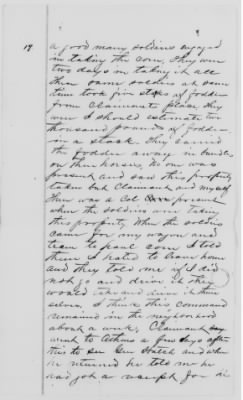 19
a good many soldiers engaged
in taking the corn, They were
two days in taking it all
these same soldiers at same
time took five stacks of fodder
from Claimants place, they
were I should estimate two
thousand pounds of fodder
in a stack. They carried
the fodder away in bundles
on their horses, No one was
present and saw this property
taken but Claimant and myself
There was a Col present
when the soldiers were taking
this property, When the soldiers
came for my wagon and
team to haul corn I told
them I hated to leave home
and they told me if I did
not go and drive it they
would take and drive it them
selves. I think this command
remained in the neighborhood
about a week, Claimant
went to Athens a few days after
this to see Gen Hatch and when
he returned he told me he
had got a receipt for